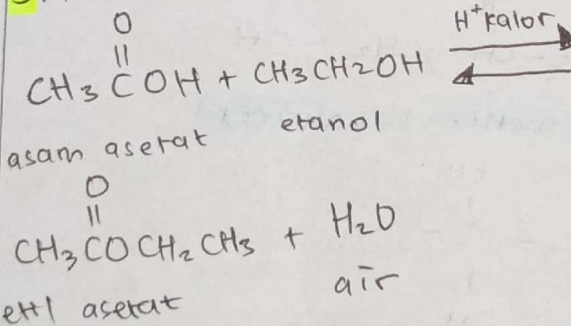 O
||
CH3COH + CH3CH2OH H+kalor
asam asetat etanol
O
||
CH3COCH2CH3 + H2O
etil asetat air